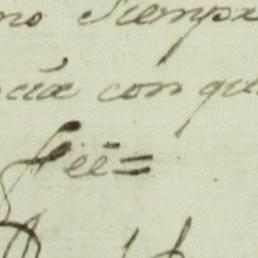 mo Siempr
cia con qu
Féé=